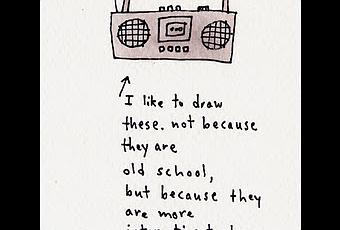 I like to draw
these. not because
they are
old school,
but because they
are more